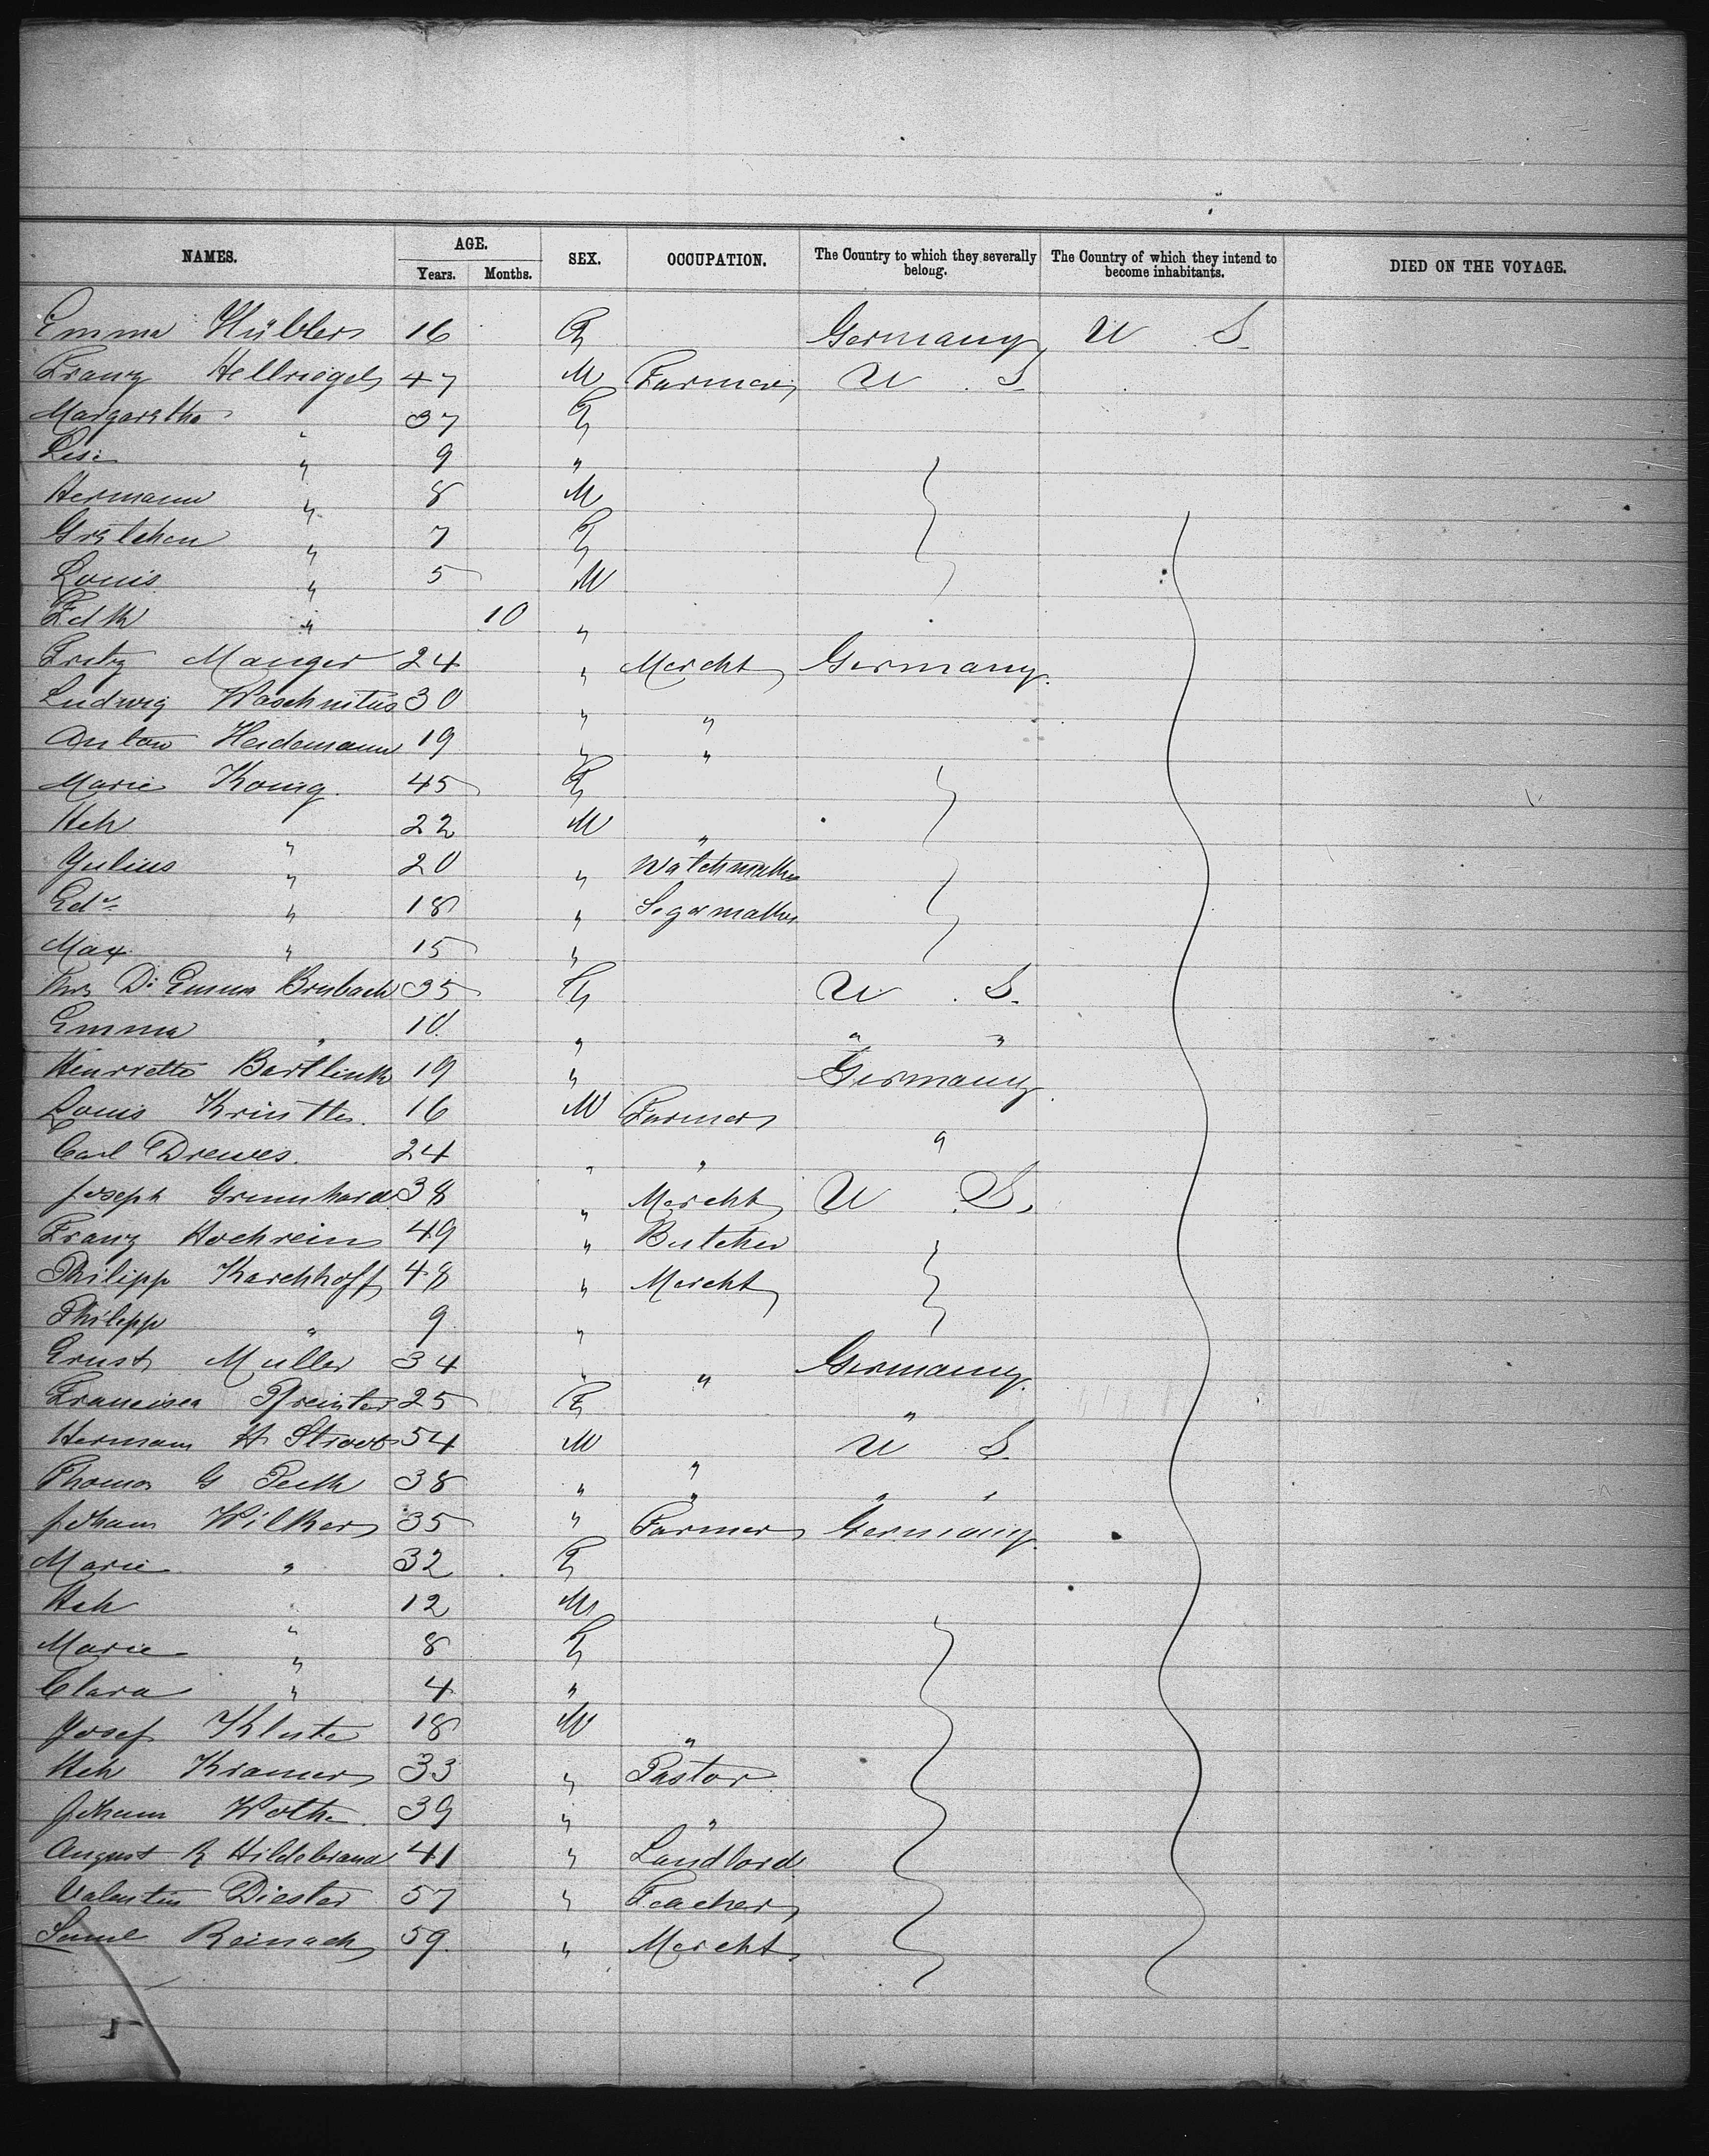 NAMES. AGE. SEX. OCCUPATION. The Country to which they severally belong. The Country of which they intend to become inhabitants. DIED ON THE VOYAGE.
Years. Months.
Emma Hübler 16 F Germany U S.
Franz Hellriegel 47 M Farmer U S
Margaretha " 37 F
Lisi " 9 "
Hermann " 8 M
Gretchen " 7 F
Louis " 5 M
" 10 "
Fritz Manger 24 " Mercht Germany.
Ludwig Waschnitus 30 " "
Anton Heidemann 19 " "
Marie Konig. 45 F
Hch " 22 M "
Julius " 20 " Watchmaker
Edw " 18 " Segarmaker
Max " 15 "
Mrs Dr Emma Brubach 35 F U S.
Emma " 10 " " "
Henriette Bartlink 19 " Germany
Louis 16 M Farmer
Carl Drewes. 24 " " "
Joseph 38 " Mercht U S.
Franz Hochrein 49 " Butcher
Philipp Karchhoff 48 " Mercht
Philipp " 9 "
Ernst Muller 34 " " Germany.
Francisca 25 F "
Hermann H 54 M " U S.
Thomas G 38 " " " "
Johann Wilker 35 " Farmer Germany.
Marie " 32 F
Hch " 12 M
Marie " 8 F
Clara " 4 "
Josef Kluste 18 M "
Hch Kramer 33 " Pastor
Johann Wothe. 39 " "
August R Hildebrand 41 " Landlord
Valentin Diester 57 " Teacher
Saml Reinach 59. " Mercht